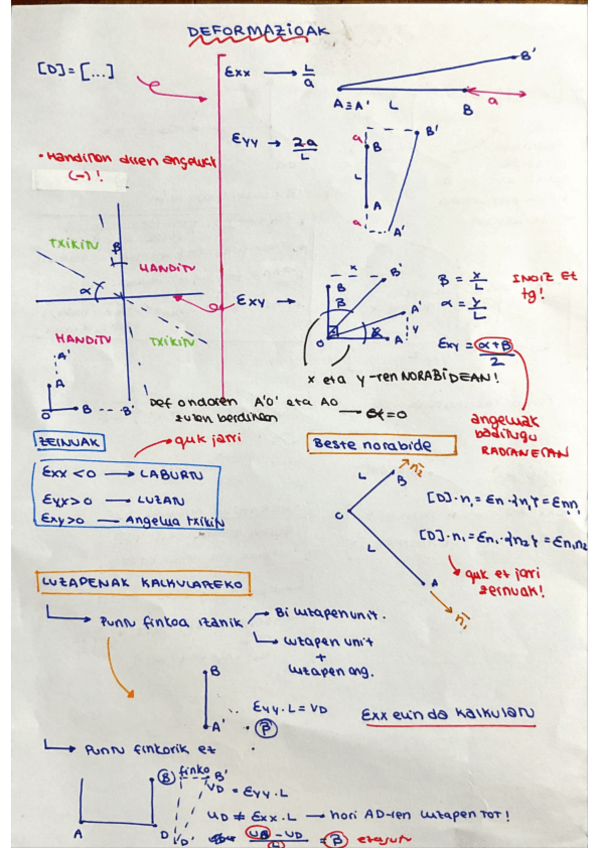 DEFORMAZIOAK
[D] = [...]
Exx → L/a
A≡A' L B B' a
Eyy → 2a/L
a B B' L A a A'
• Handitzen diren angeluak
(-)!
TXIKITU β HANDITU
α
HANDITU TXIKITU
A' A O B B'
Exy →
x B B' β A' y α O A
β = x/L
α = y/L
INOIZ EZ tg!
Exy = (α+β)/2
x eta y-ren NORABIDEAN!
Def ondoren A'O' eta AO
zuten berdinean → α=0
angeluak
baditugu
RADIANETAN
ZEINUAK → guk jarri
Exx < 0 → LABURTU
Eyx > 0 → LUZATU
Exy > 0 → Angelua txikitu
Beste norabide
n₂ B L C L A n₁
[D]·n₁ = En·{n₁} = Enn₁
[D]·n₁ = En₁·{n₂} = En₁n₂
guk ez jarri
zeinuak!
LUZAPENAK KALKULATZEKO
Puntu finkoa izanik → Bi luzapen unit.
→ luzapen unit
+
luzapen ang.
B A' β
Eyy·L = VD
Exx ezin da kalkulatu
Puntu finkorik ez
B finko B'
A D D'
VD = Eyy·L
UD ≠ Exx·L → hori AD-ren luzapen TOT!
(UB - UD)/L = β